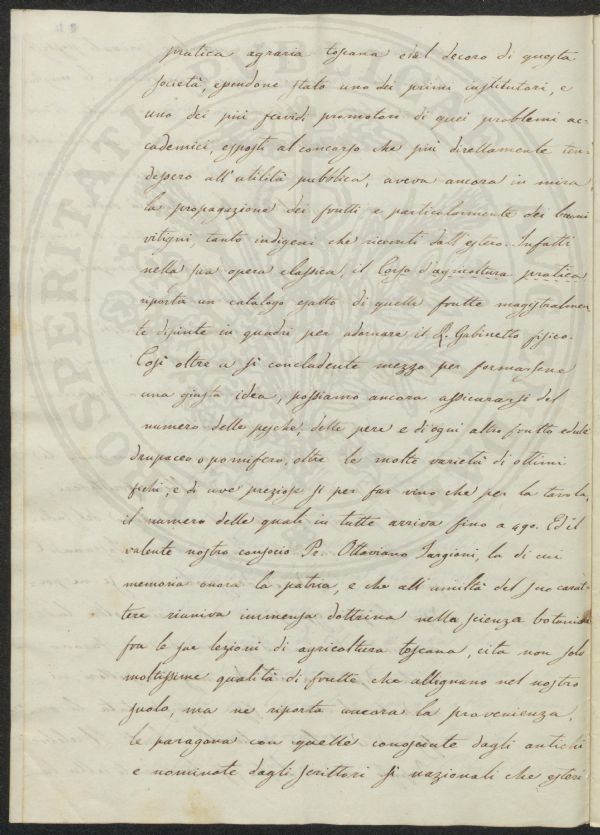 pratica agraria toscana e il decoro di questa
società, essendone stato uno dei primi institutori, e
uno dei più fervidi promotori di quei problemi ac-
cademici, esposti al concorso che più direttamente ten-
dessero all'utilità pubblica, aveva ancora in mira
la propagazione dei frutti e particolarmente dei buoni
vitigni tanto indigeni che ricevuti dall'estero. Infatti
nella sua opera classica, il Corso d'agricoltura pratica
riporta un catalogo esatto di quelle frutte magistralmen-
te dipinte in quadri per adornare il R. Gabinetto fisico.
Così oltre a sì concludente mezzo per formarsene
una giusta idea, possiamo ancora assicurarsi del
numero delle pesche, delle pere e di ogni altro frutto edule
drupaceo o pomifero, oltre le molte varietà di ottimi
fichi, e di uve preziose sì per far vino che per la tavola,
il numero delle quali in tutte arriva fino a 490. Ed il
valente nostro consocio Pr. Ottaviano Targioni, la di cui
memoria onora la patria, e che all'umiltà del suo carat-
tere riuniva immensa dottrina nella scienza botanica
fra le sue lezioni di agricoltura toscana, cita non solo
moltissime qualità di frutte che allignano nel nostro
suolo, ma ne riporta ancora la provenienza,
le paragona con quelle conosciute dagli antichi
e nominate dagli scrittori sì nazionali che esteri